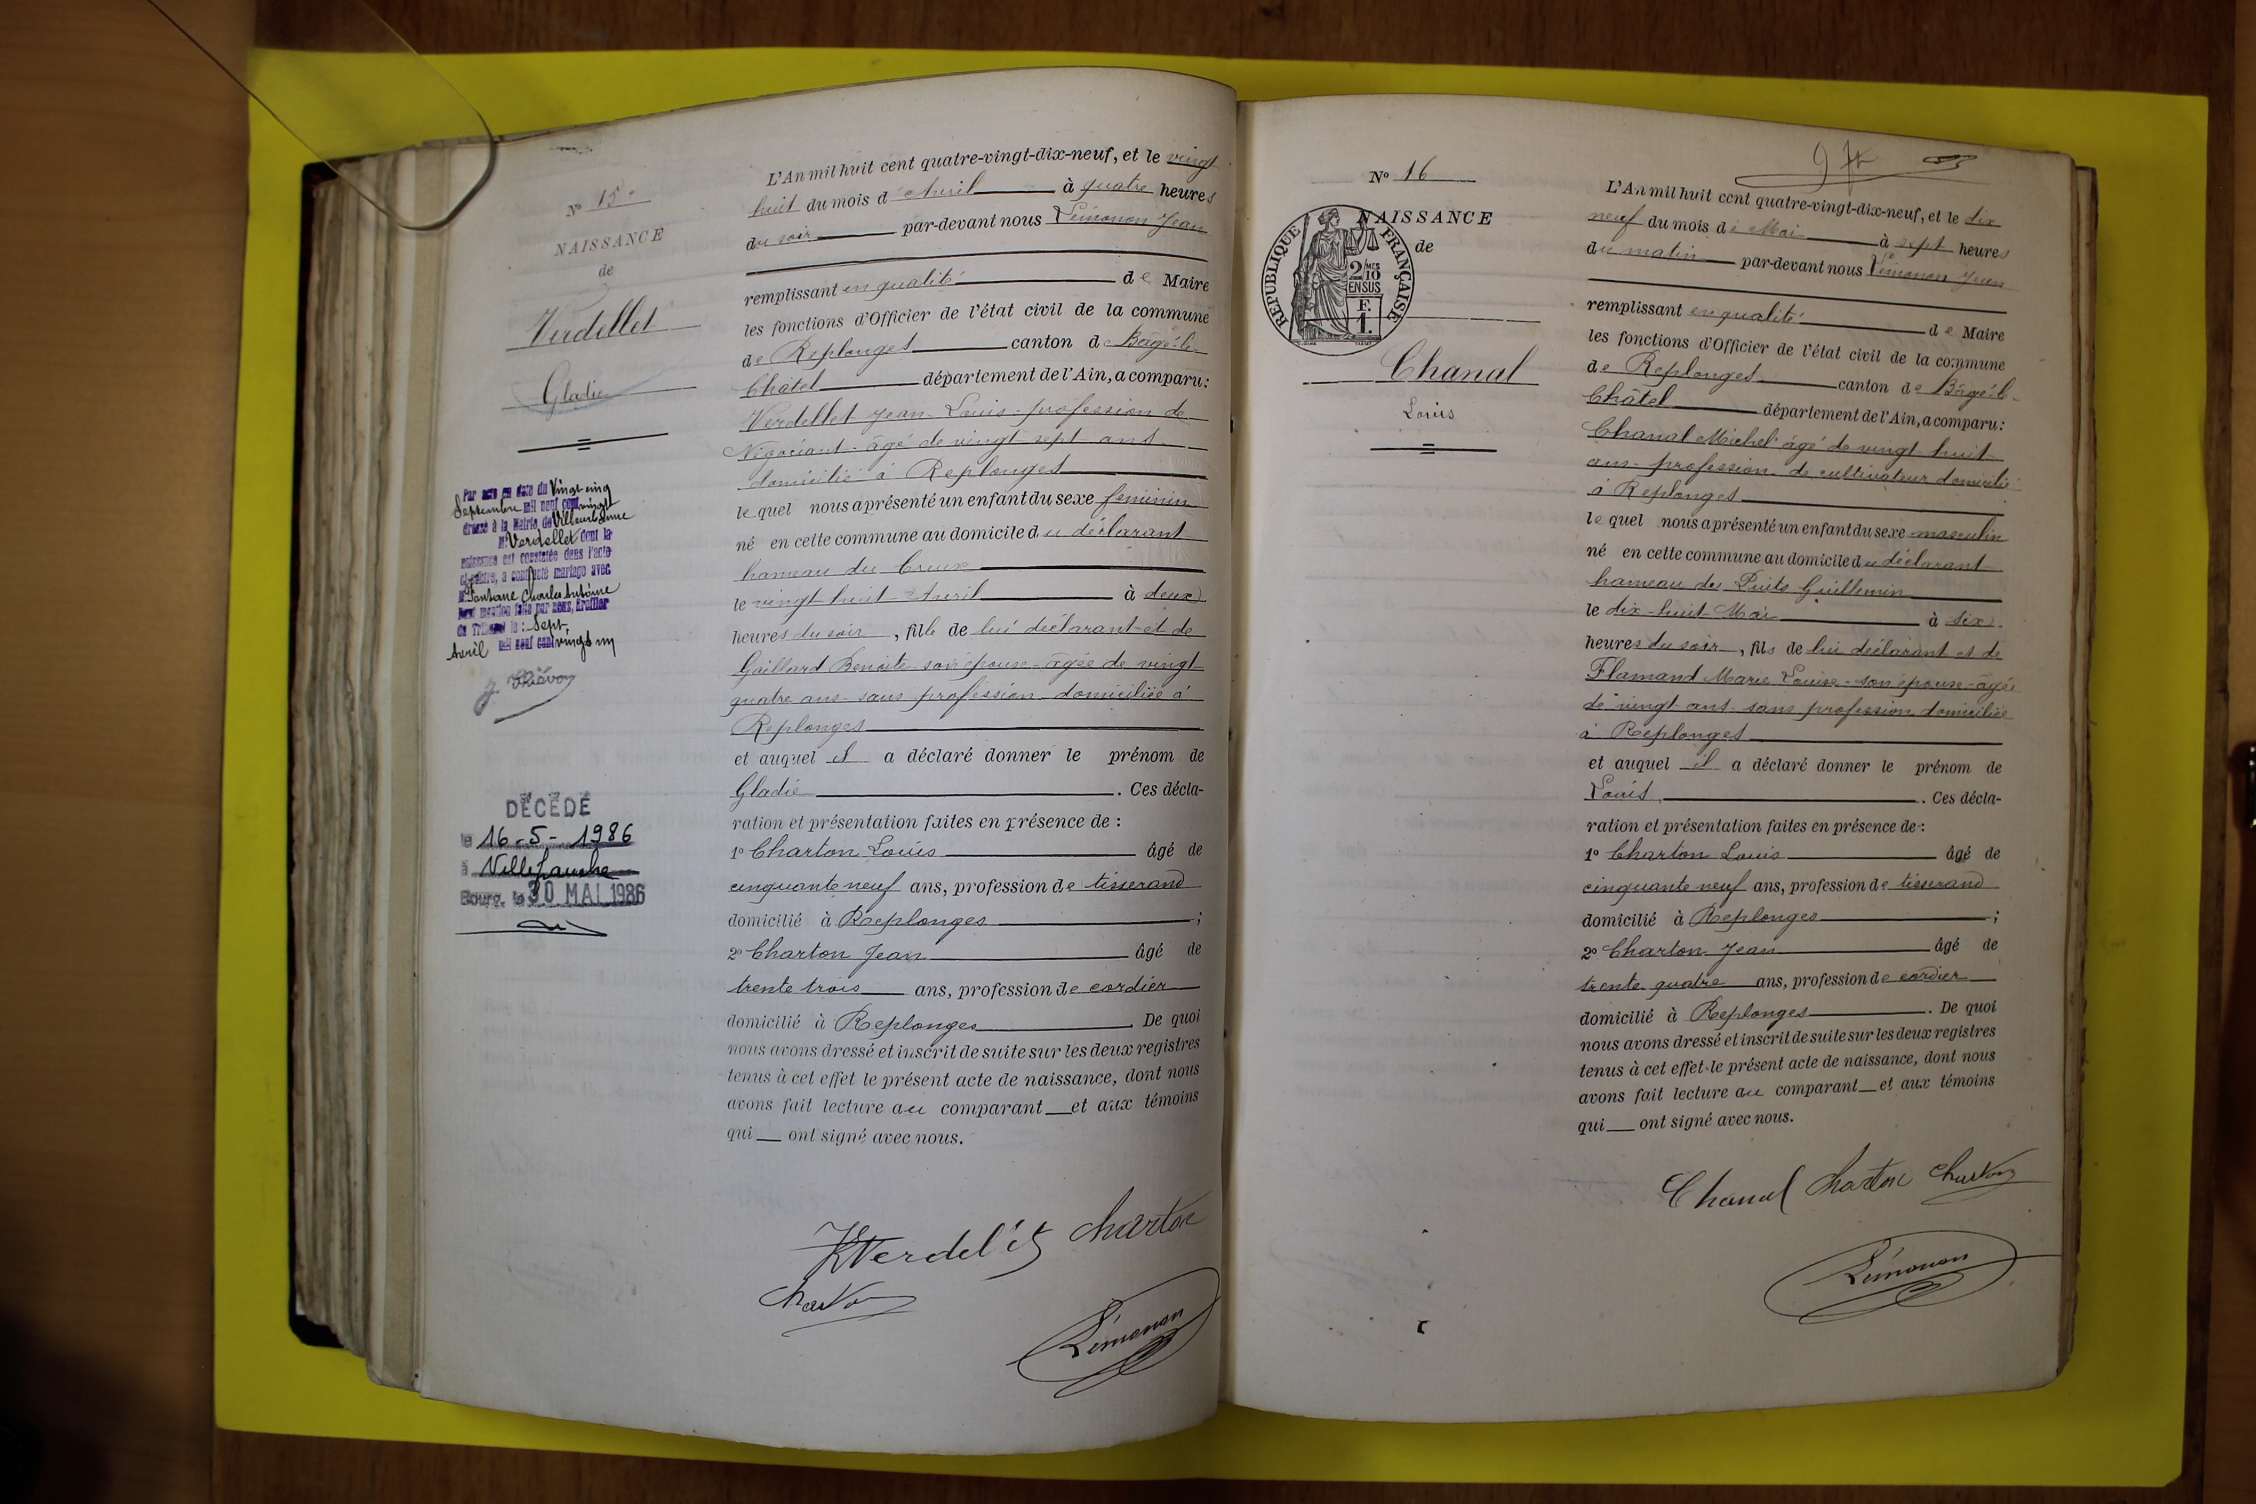 N° 15
NAISSANCE
de
Verdellet
Gladie
Par acte en date du Vingt-cinq
Septembre mil neuf cent vingt
dressé à la Mairie de Villeurbanne
Verdellet dont la
naissance est constatée dans l'acte
ci-contre, a contracté mariage avec
Fontane Charles Antoine
mention faite par nous, Greffier
du Tribunal le : Sept
Avril mil neuf cent vingt un
DÉCÉDÉ
le 16-5-1986
à Villefranche
Bourg, le 30 MAI 1986
L'An mil huit cent quatre-vingt-dix-neuf, et le vingt
huit du mois d'Avril à quatre heures
du soir par-devant nous Lémonon Jean
remplissant en qualité de Maire
les fonctions d'Officier de l'état civil de la commune
de Replonges canton de Bâgé-le-
Châtel département de l'Ain, a comparu :
Verdellet Jean-Louis profession de
Négociant âgé de vingt sept ans
domicilié à Replonges
lequel nous a présenté un enfant du sexe féminin
né en cette commune au domicile du déclarant
hameau du Creux
le vingt huit Avril à deux
heures du soir, fille de lui déclarant et de
Gaillard Benoite son épouse âgée de vingt
quatre ans sans profession domiciliée à
Replonges
et auquel il a déclaré donner le prénom de
Gladie. Ces décla-
ration et présentation faites en présence de :
1° Charton Louis âgé de
cinquante neuf ans, profession de tisserand
domicilié à Replonges ;
2° Charton Jean âgé de
trente trois ans, profession de cordier
domicilié à Replonges. De quoi
nous avons dressé et inscrit de suite sur les deux registres
tenus à cet effet le présent acte de naissance, dont nous
avons fait lecture au comparant et aux témoins
qui ont signé avec nous.
Verdellet Charton
Charton
Lémonon
N° 16
NAISSANCE
de
REPUBLIQUE FRANÇAISE
2 MES
10
EN SUS
F.
1.
Chanal
Louis
97
L'An mil huit cent quatre-vingt-dix-neuf, et le dix
neuf du mois de Mai à sept heures
du matin par-devant nous Lémonon Jean
remplissant en qualité de Maire
les fonctions d'Officier de l'état civil de la commune
de Replonges canton de Bâgé-le-
Châtel département de l'Ain, a comparu :
Chanal Michel âgé de vingt huit
ans profession de cultivateur domicilié
à Replonges
lequel nous a présenté un enfant du sexe masculin
né en cette commune au domicile du déclarant
hameau du Puits Guillemin
le dix-huit Mai à six
heures du soir, fils de lui déclarant et de
Flamand Marie Louise son épouse âgée
de vingt ans sans profession domiciliée
à Replonges
et auquel il a déclaré donner le prénom de
Louis. Ces décla-
ration et présentation faites en présence de :
1° Charton Louis âgé de
cinquante neuf ans, profession de tisserand
domicilié à Replonges ;
2° Charton Jean âgé de
trente quatre ans, profession de cordier
domicilié à Replonges. De quoi
nous avons dressé et inscrit de suite sur les deux registres
tenus à cet effet le présent acte de naissance, dont nous
avons fait lecture au comparant et aux témoins
qui ont signé avec nous.
Chanal Charton Charton
Lémonon